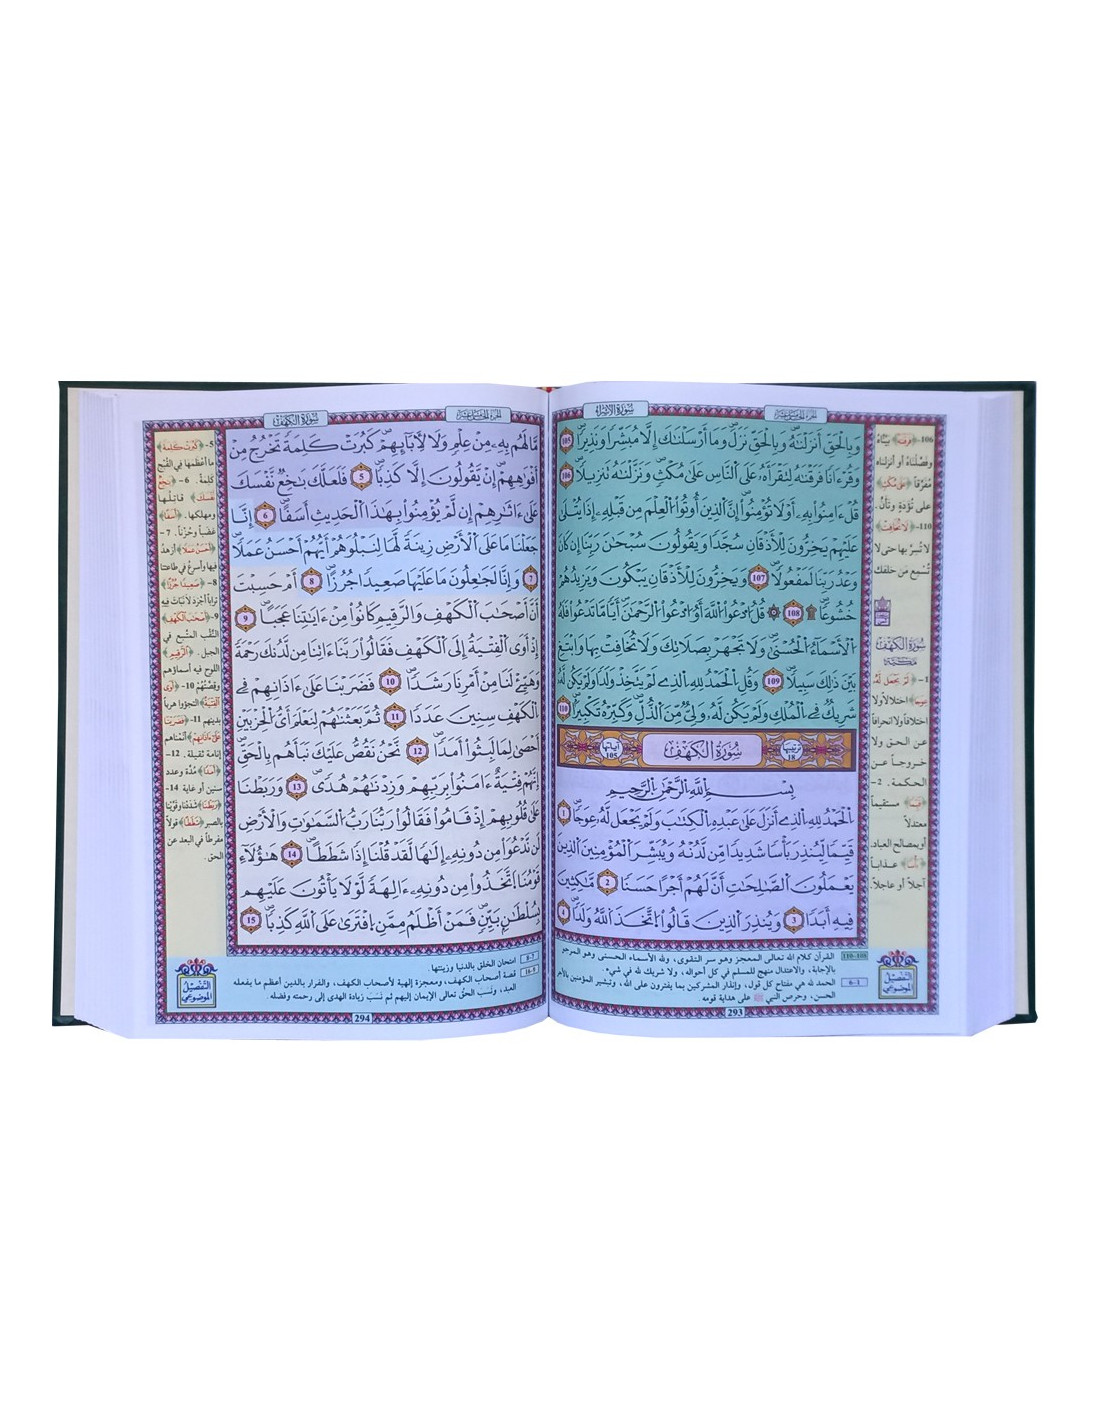 سورة الإسراء
الجزء الخامس عشر
وبالحق أنزلنه وبالحق نزل وما أرسلنك إلا مبشرا ونذيرا 105
وقرءانا فرقنه لتقرأه على الناس على مكث ونزلنه تنزيلا 106
قل ءامنوا به أو لا تؤمنوا إن الذين أوتوا العلم من قبله إذا يتلى
عليهم يخرون للأذقان سجدا ويقولون سبحن ربنا إن كان
وعد ربنا لمفعولا 107 ويخرون للأذقان يبكون ويزيدهم
خشوعا 108 قل ادعوا الله أو ادعوا الرحمن أيا ما تدعوا فله
الأسماء الحسنى ولا تجهر بصلاتك ولا تخافت بها وابتغ
بين ذلك سبيلا 109 وقل الحمد لله الذي لم يتخذ ولدا ولم يكن له
شريك في الملك ولم يكن له ولي من الذل وكبره تكبيرا 110
ترتيبها 18 سورة الكهف آياتها 105
بسم الله الرحمن الرحيم
الحمد لله الذي أنزل على عبده الكتب ولم يجعل له عوجا 1
قيما لينذر بأسا شديدا من لدنه ويبشر المؤمنين الذين
يعملون الصلحت أن لهم أجرا حسنا 2 مكثين
فيه أبدا 3 وينذر الذين قالوا اتخذ الله ولدا 4
106- ﴿فرقنه﴾ بيناه
وفصلناه أو أنزلناه
مفرقا ﴿على مكث﴾
على تؤدة وتأن.
110- ﴿لا تخافت﴾
لا تسر بها حتى لا
تسمع من خلفك
سورة الكهف
مكية
1- ﴿لم يجعل له
عوجا﴾ اختلالا ولا
اختلافا ولا انحرافا
عن الحق ولا
خروجا عن
الحكمة. 2-
﴿قيما﴾ مستقيما
معتدلا
أو بمصالح العباد.
﴿بأسا﴾ عذابا
آجلا أو عاجلا.
110-108 القرآن كلام الله تعالى المعجز وهو سر التقوى، ولله الأسماء الحسنى وهو المرجو
بالإجابة، والاعتدال منهج للمسلم في كل أحواله، ولا شريك لله في شيء.
الحمد لله هي مفتاح كل قول، وإنذار المشركين بما يفترون على الله، وتبشير المؤمنين بالأجر
الحسن، وحرص النبي ﷺ على هداية قومه
التفصيل
الموضوعي
293
الجزء الخامس عشر
سورة الكهف
ما لهم به من علم ولا لأبائهم كبرت كلمة تخرج من
أفوههم إن يقولون إلا كذبا 5 فلعلك بخع نفسك
على ءاثرهم إن لم يؤمنوا بهذا الحديث أسفا 6 إنا
جعلنا ما على الأرض زينة لها لنبلوهم أيهم أحسن عملا
7 وإنا لجعلون ما عليها صعيدا جرزا 8 أم حسبت
أن أصحب الكهف والرقيم كانوا من ءايتنا عجبا 9
إذ أوى الفتية إلى الكهف فقالوا ربنا ءاتنا من لدنك رحمة
وهيئ لنا من أمرنا رشدا 10 فضربنا على ءاذانهم في
الكهف سنين عددا 11 ثم بعثنهم لنعلم أي الحزبين
أحصى لما لبثوا أمدا 12 نحن نقص عليك نبأهم بالحق
إنهم فتية ءامنوا بربهم وزدنهم هدى 13 وربطنا
على قلوبهم إذ قاموا فقالوا ربنا رب السموت والأرض
لن ندعوا من دونه إلها لقد قلنا إذا شططا 14 هؤلاء
قومنا اتخذوا من دونه ءالهة لولا يأتون عليهم
بسلطن بين فمن أظلم ممن افترى على الله كذبا 15
5- ﴿كبرت كلمة﴾
ما أعظمها في القبح
كلمة. 6- ﴿بخع
نفسك﴾ قاتلها
ومهلكها. ﴿أسفا﴾
غضبا وحزنا. 7-
﴿أحسن عملا﴾ أزهد
فيها وأسرع في طاعتنا
8- ﴿صعيدا جرزا﴾
ترابا أجرد لا نبات فيه
9- ﴿أصحب الكهف﴾
النقب المتسع في
الجبل. ﴿الرقيم﴾
اللوح فيه أسماؤهم
وقصتهم 10- ﴿أوى
الفتية﴾ التجؤوا هربا
بدينهم 11- ﴿فضربنا
على ءاذانهم﴾ أنمناهم
إنامة ثقيلة. 12-
﴿أمدا﴾ مدة وعدد
سنين أو غاية 14-
﴿ربطنا﴾ شددنا وقوينا
بالصبر ﴿شططا﴾ قولا
مفرطا في البعد عن
الحق.
امتحان الخلق بالدنيا وزينتها.
قصة أصحاب الكهف، ومعجزة إلهية لأصحاب الكهف، والفرار بالدين أعظم ما يفعله
العبد، ونسب الحق تعالى الإيمان إليهم ثم نسب زيادة الهدى إلى رحمته وفضله.
التفصيل
الموضوعي
294